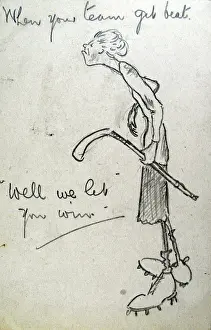 When your team gets beat.
"Well we let"
you win"